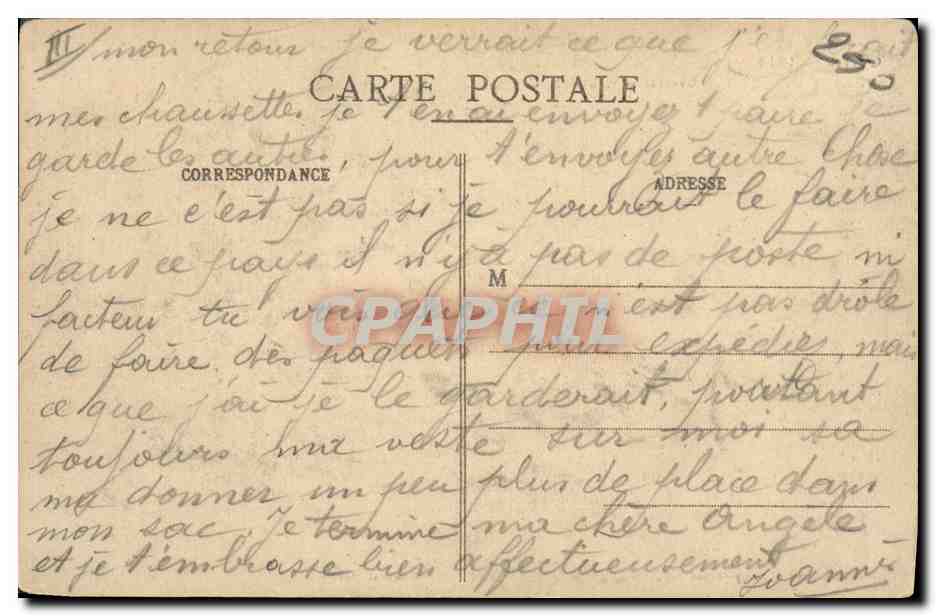 III / mon retour je verrait ce que j'en fait
255
CARTE POSTALE
mes chaussettes je t'en ai envoyer 1 paire je
garde les autres, pour t'envoyer autre chose
CORRESPONDANCE
ADRESSE
je ne c'est pas si je pourrait le faire
dans ce pays il n'y à pas de poste ni
M
facteur tu vois que ce n'est pas drôle
CPAPHIL
de faire des paquets pour expédier, mais
ce que j'ai je le garderait, portant
toujours ma veste sur moi sa
ma donner un peu plus de place dans
mon sac. Je termine ma chère Angèle
et je t'embrasse bien affectueusement
Joannès